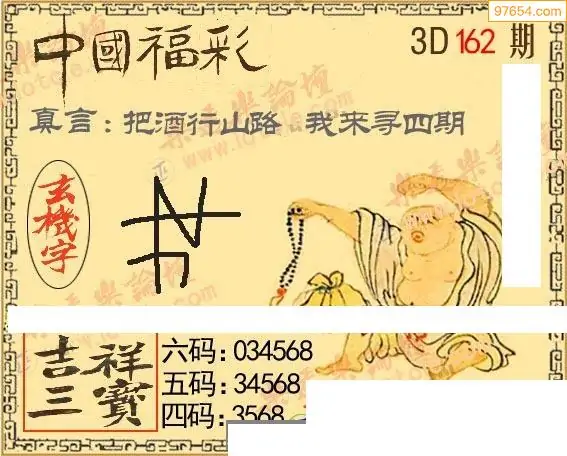 97654.com
中國福彩
3D 162 期
真言：把酒行山路 我来寻四期
玄機字
吉祥三寶
六码：034568
五码：34568
四码：3568